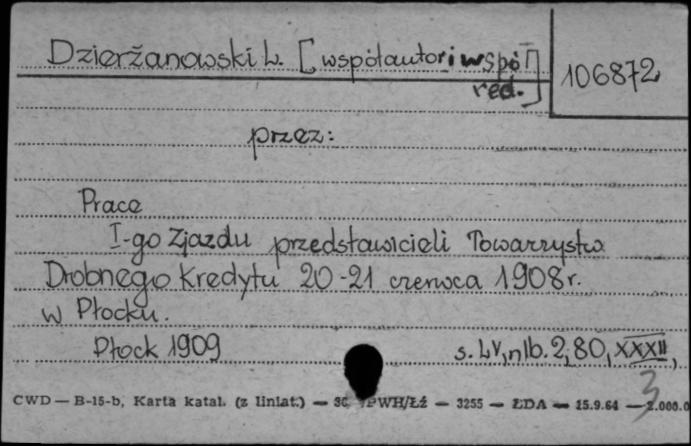 Dzierżanowski L. [współautor i współ
red.]
106872
przez:
Prace
I-go Zjazdu przedstawicieli Towarzystw
Drobnego Kredytu 20-21 czerwca 1908r.
w Płocku.
Płock 1909 s. LV, nlb. 2, 80, XXXII,
3
CWD — B-15-b, Katal. (z liniat.) — PWH/Łź — 3255 — ŁDA — 15.9.64 — 2.000.0